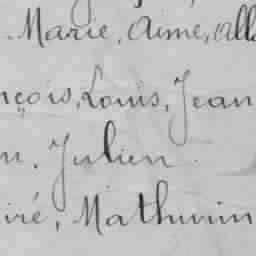 Marie, Aimé, All
nçois, Louis, Jean
n. Julien.
iré, Mathurin